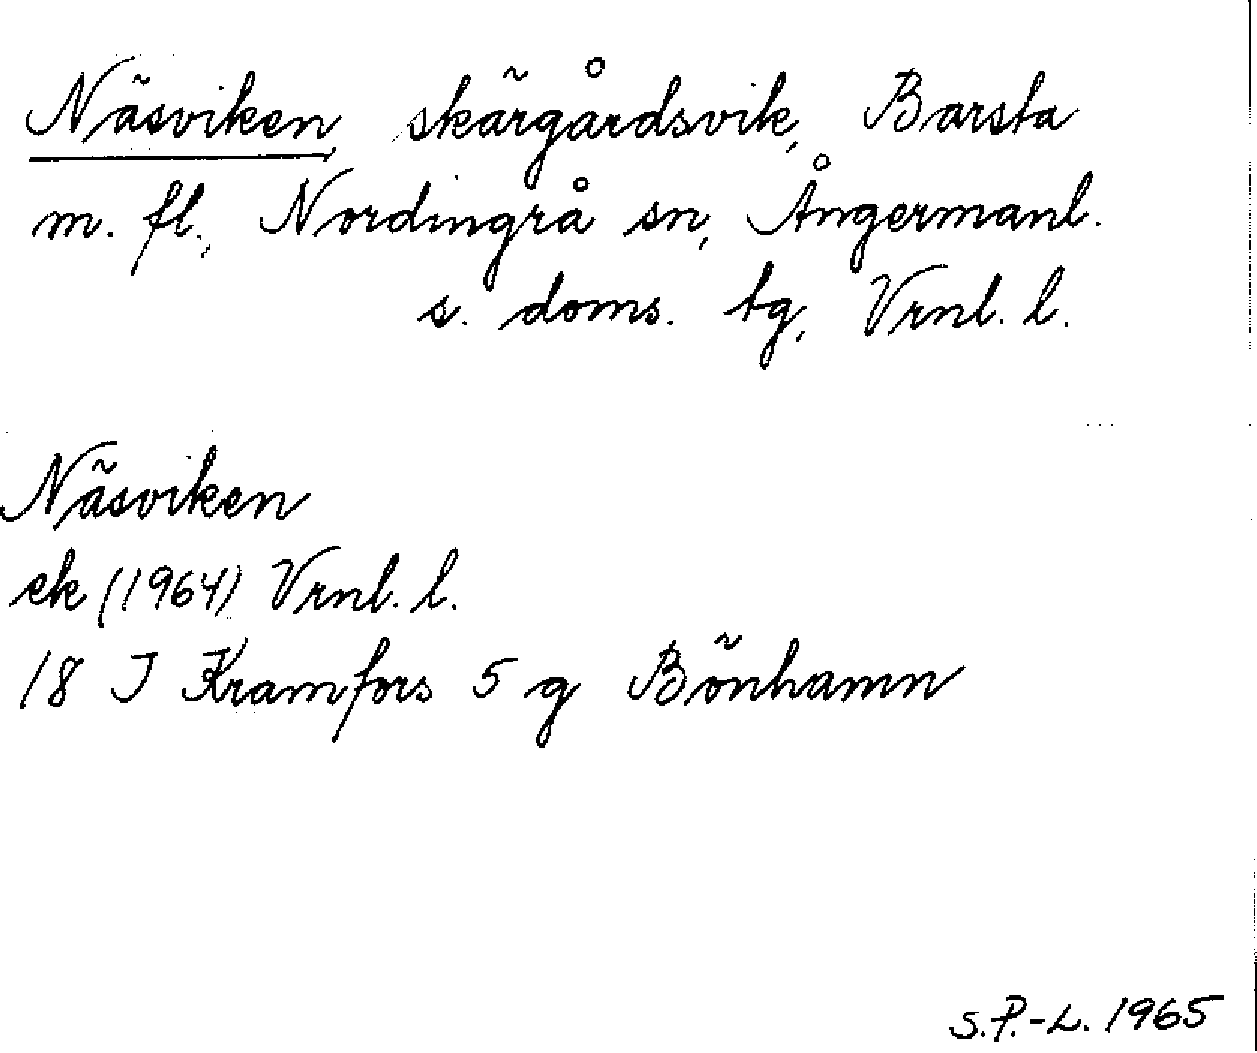 Näsviken, skärgårdsvik, Barsta
m. fl., Nordingrå sn, Ångermanl.
s. doms. tg, Vrnl. l.
Näsviken
ek (1964) Vrnl. l.
18 I Kramfors 5 g Bönhamn
S.P.-L. 1965